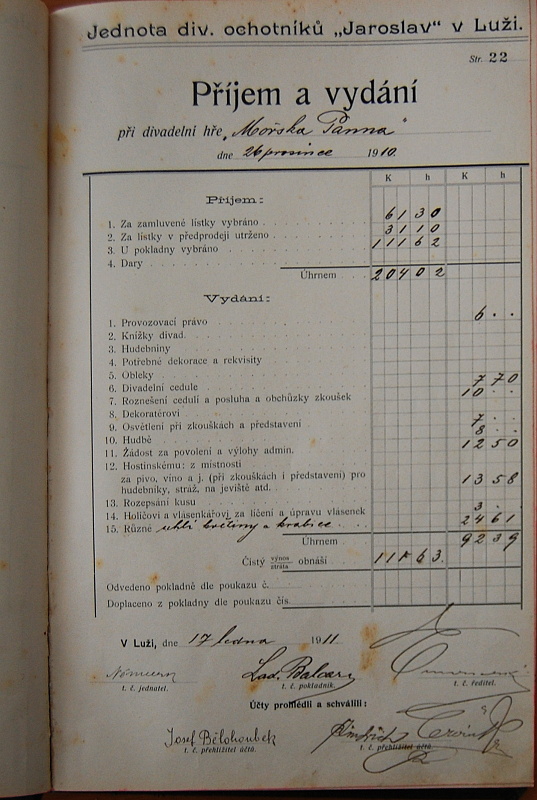 Jednota div. ochotníků „Jaroslav“ v Luži.
Str. 22
Příjem a vydání
při divadelní hře „Mořska Panna“
dne 26 prosince 1910.
K h K h
Příjem:
1. Za zamluvené lístky vybráno 61 30
2. Za lístky v předprodeji utrženo 31 10
3. U pokladny vybráno 111 62
4. Dary
Úhrnem 204 02
Vydání:
1. Provozovací právo 6 . .
2. Knížky divad.
3. Hudebniny
4. Potřebné dekorace a rekvisity
5. Obleky
6. Divadelní cedule 7 70
7. Roznešení cedulí a posluha a obchůzky zkoušek 10 . .
8. Dekoratérovi
9. Osvětlení při zkouškách a představení 7 . .
10. Hudbě 8 . .
11. Žádost za povolení a výlohy admin. 12 50
12. Hostinskému: z místnosti
za pivo, víno a j. (při zkouškách i představení) pro
hudebníky, stráž, na jeviště atd. 13 58
13. Rozepsání kusu
14. Holičovi a vlásenkářovi za líčení a úpravu vlásenek 3 . .
15. Různé uhlí květiny a krabice 24 61
Úhrnem 92 39
Čistý výnos ztráta obnáší 111 63.
Odvedeno pokladně dle poukazu č.
Doplaceno z pokladny dle poukazu čís.
V Luži, dne 17 ledna 1911.
Lad. Balcar
t. č. jednatel. t. č. pokladník. t. č. ředitel.
Účty prohlédli a schválili:
Josef Bělohoubek Jindřich
t. č. přehlížitel účtů. t. č. přehlížitel účtů.